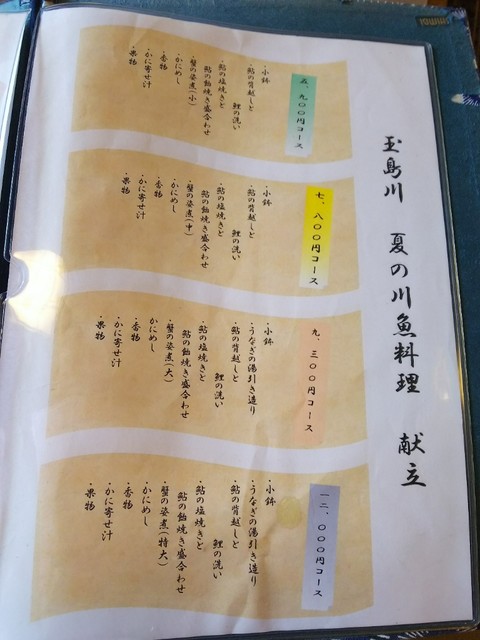 玉島川 夏の川魚料理 献立
五、九〇〇円コース
・小鉢
・鮎の背越しと
鯉の洗い
・鮎の塩焼きと
鮎の飴焼き盛合わせ
・蟹の姿煮(小)
・かにめし
・香物
・かに寄せ汁
・果物
七、八〇〇円コース
・小鉢
・鮎の背越しと
鯉の洗い
・鮎の塩焼きと
鮎の飴焼き盛合わせ
・蟹の姿煮(中)
・かにめし
・香物
・かに寄せ汁
・果物
九、三〇〇円コース
・小鉢
・うなぎの湯引き造り
・鮎の背越しと
鯉の洗い
・鮎の塩焼きと
鮎の飴焼き盛合わせ
・蟹の姿煮(大)
・かにめし
・香物
・かに寄せ汁
・果物
一二、〇〇〇円コース
・小鉢
・うなぎの湯引き造り
・鮎の背越しと
鯉の洗い
・鮎の塩焼きと
鮎の飴焼き盛合わせ
・蟹の姿煮(特大)
・かにめし
・香物
・かに寄せ汁
・果物